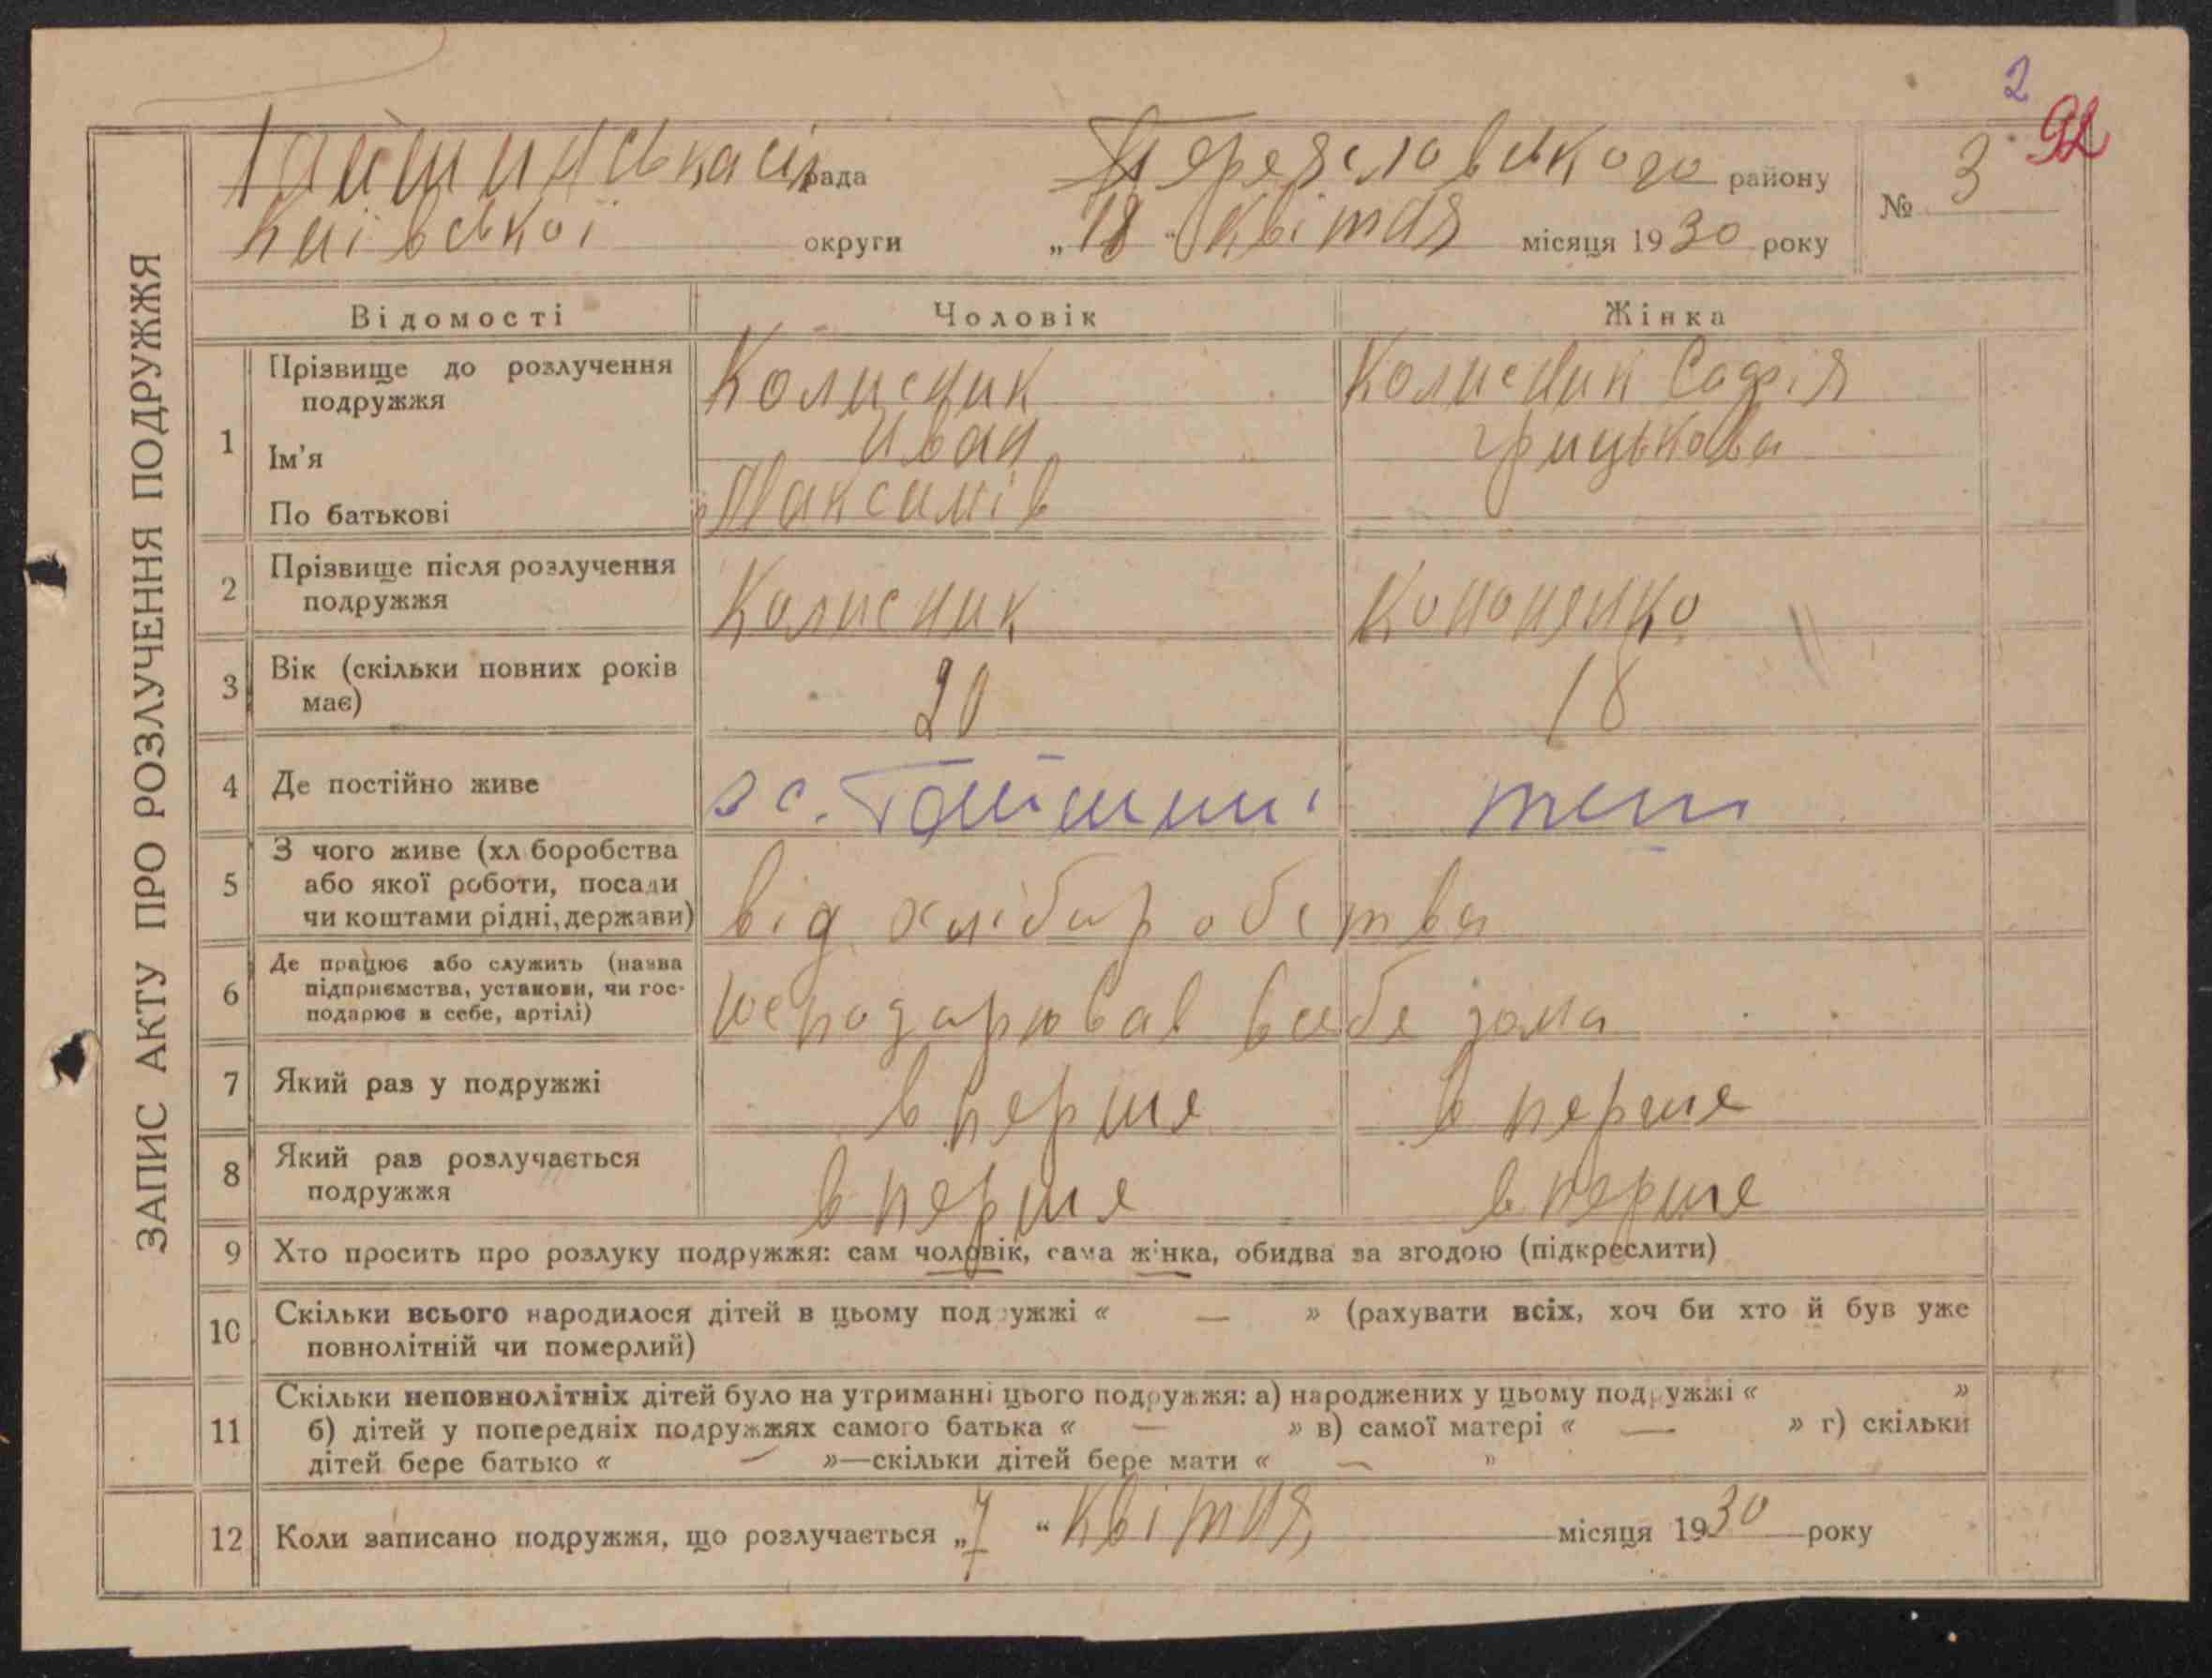 2
92
Гайшинська сіль рада Переяславського району № 3
Київської округи „18“ Квітня місяця 1930 року
ЗАПИС АКТУ ПРО РОЗЛУЧЕННЯ ПОДРУЖЖЯ
Відомості Чоловік Жінка
1 Прізвище до розлучення подружжя Колисник Колисник Софія
Ім'я Иван Грицькова
По батькові Максимів
2 Прізвище після розлучення подружжя Колисник Кононянко
3 Вік (скільки повних років має) 20 18
4 Де постійно живе в с. Гайшині теш
5 З чого живе (хліборобства або якої роботи, посади чи коштами рідні, держави) від хліборобства
6 Де працює або служить (назва підприємства, установи, чи господарює в себе, артілі) всебе дома
7 Який раз у подружжі в перше в перше
8 Який раз розлучається подружжя в перше в перше
9 Хто просить про розлуку подружжя: сам чоловік, сама жінка, обидва за згодою (підкреслити)
10 Скільки всього народилося дітей в цьому подружжі « — » (рахувати всіх, хоч би хто й був уже
повнолітній чи померлий)
11 Скільки неповнолітніх дітей було на утриманні цього подружжя: а) народжених у цьому подружжі « »
б) дітей у попередніх подружжях самого батька « — » в) самої матері « — » г) скільки
дітей бере батько « — »—скільки дітей бере мати « — »
12 Коли записано подружжя, що розлучається „7“ Квітня місяця 1930 року